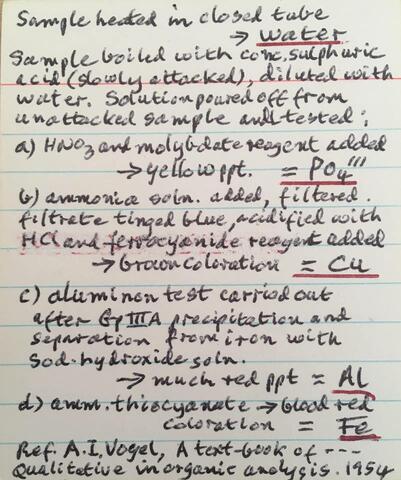 Sample heated in closed tube
→ water
Sample boiled with conc. sulphuric
acid (slowly attacked), diluted with
water. Solution poured off from
unattacked sample and tested:
a) HNO3 and molybdate reagent added
→ yellow ppt. = PO4'''
b) ammonia soln. added, filtered.
filtrate tinged blue, acidified with
HCl and ferrocyanide reagent added
→ brown coloration = Cu
c) aluminon test carried out
after Gp IIIA precipitation and
separation from iron with
sod. hydroxide soln.
→ much red ppt = Al
d) amm. thiocyanate → blood red
coloration = Fe
Ref. A.I. Vogel, A text-book of ---
Qualitative inorganic analysis. 1954